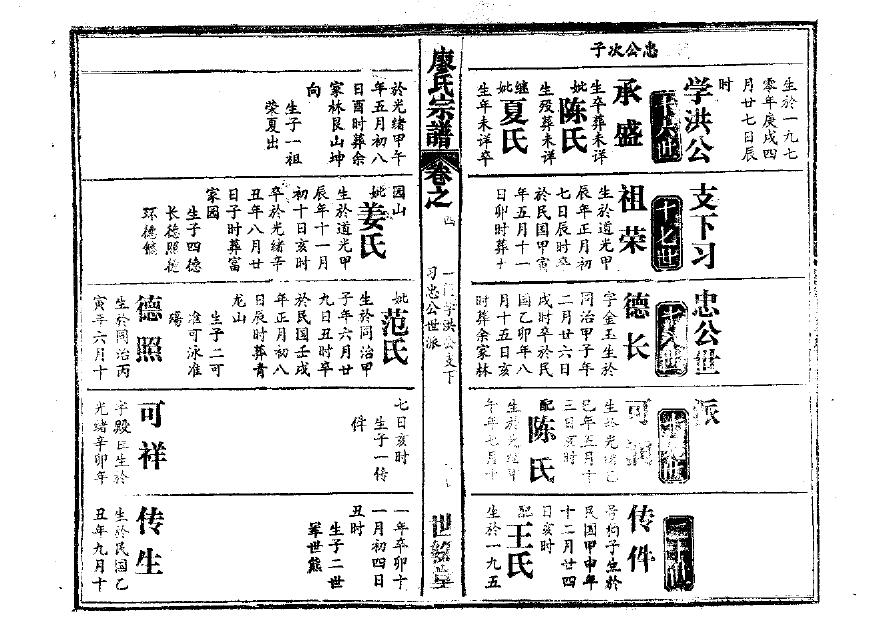 忠公次子
生於一九七
零年庚戌四
月廿七日辰
时
学洪公支下习忠公世派
十六世
承盛
生卒葬未详
妣陈氏
生殁葬未详
继妣夏氏
生年未详卒
十七世
祖荣
生於道光甲
辰年正月初
七日辰时卒
於民国甲寅
年五月十一
日卯时葬十
十八世
德长
字金玉生於
同治甲子年
二月廿六日
戌时卒於民
国乙卯年八
月十五日亥
时葬余家林
可
生於光绪乙
巳年五月十
三日亥时
配陈氏
生於光绪甲
午年七月十
二十世
传件
号狗子生於
民国甲申年
十二月廿四
日亥时
配王氏
生於一九五
廖氏宗谱
卷之四
学洪公支下
习忠公世派
世
於光绪甲午
年五月初八
日酉时葬余
家林艮山坤
向
生子一祖
荣夏出
园山
妣姜氏
生於道光甲
辰年十一月
初十日亥时
卒於光绪辛
丑年八月廿
日子时葬富
家园
生子四德
长德照德
环德
妣范氏
生於同治甲
子年六月廿
九日丑时卒
於民国壬戌
年正月初八
日辰时葬青
龙山
生子二可
准可泳准
殇
德照
生於同治丙
寅年六月十
七日亥时
生子一传
件
可祥
字殿臣生於
光绪辛卯年
一年辛卯十
一月初四日
丑时
生子二世
军世熊
传生
生於民国乙
丑年九月十